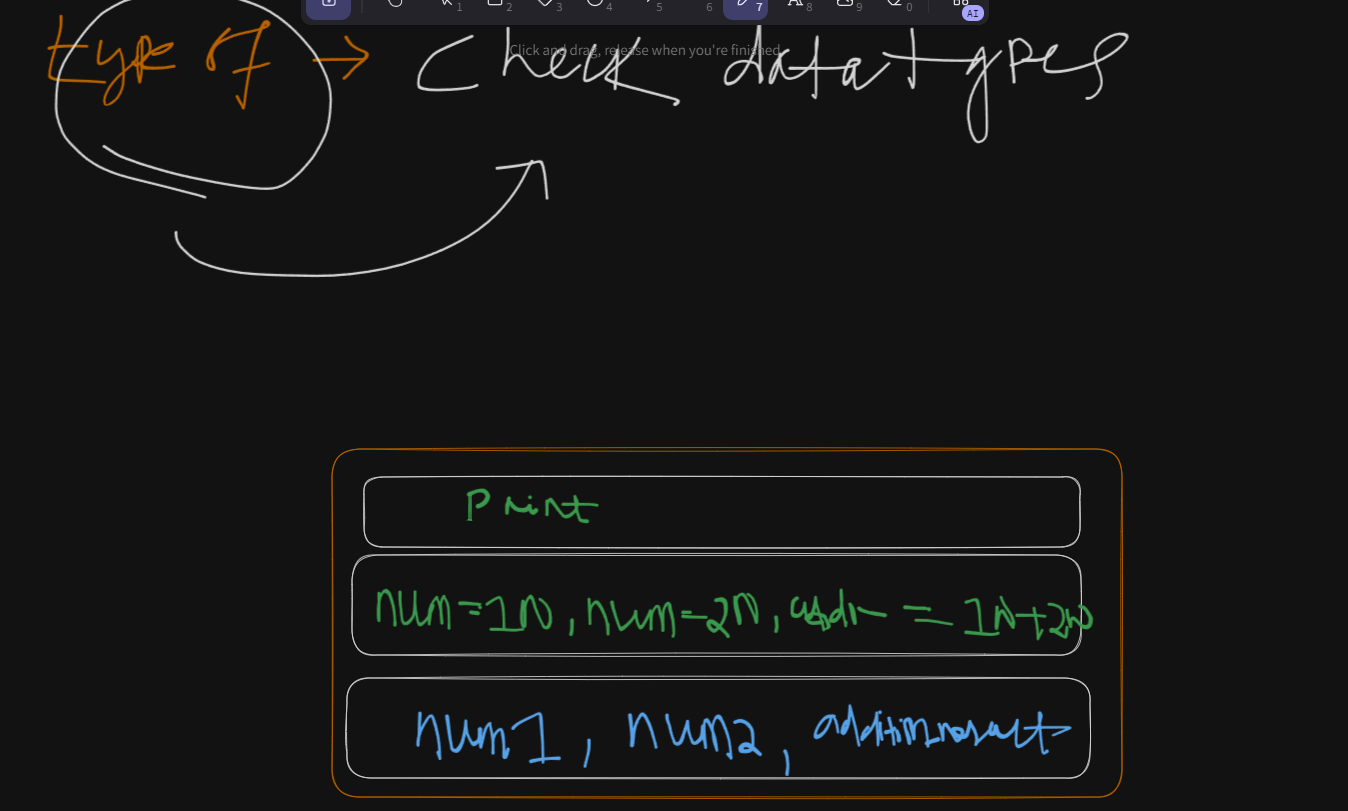 1 2 3 4 5 6 7 8 9 0
AI
Click and drag, release when you're finished
type of → Check data types
Print
num=1N, num=2N, = 1N+2N
num1, num2, additionresult